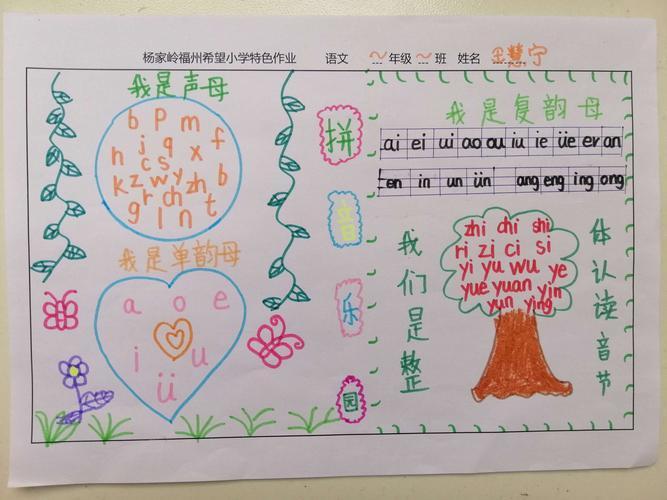 杨家岭福州希望小学特色作业 语文 一年级 一班 姓名 王慧宁
我是声母
b p m f
h j q x
c s
k z w y zh b
g r ch t
l n
我是单韵母
a o e
i u
ü
拼音乐园
我是复韵母
ai ei ui ao ou iu ie üe er an
en in un ün ang eng ing ong
我们是整体认读音节
zhi chi shi
ri zi ci si
yi yu wu ye
yue yuan yin
yun ying